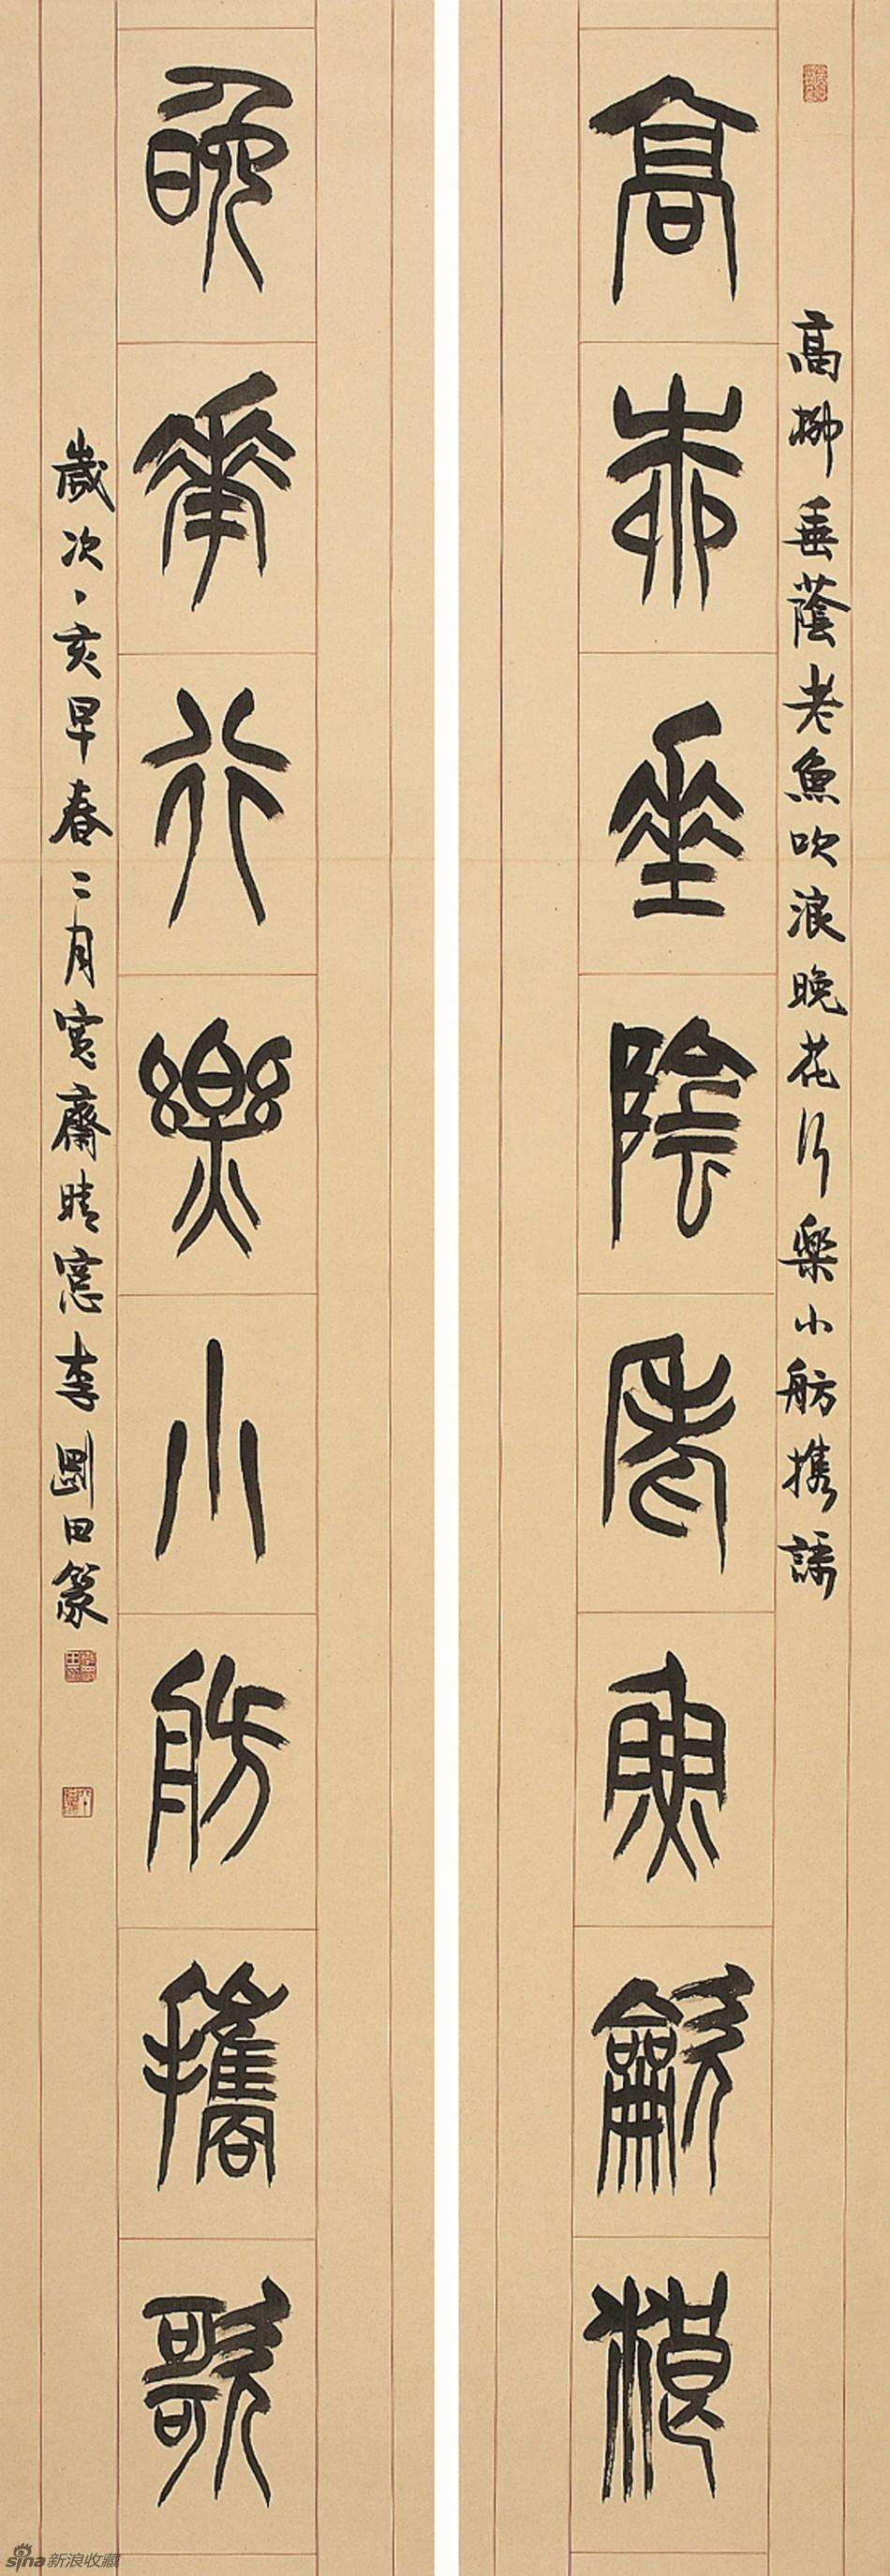 高柳垂蔭老魚吹浪晚花行樂小舫携謌
高柳垂陰老魚龡浪
晚華行樂小舫攜歌
歲次亥早春二月寬齋晴窓李剛田篆
sina新浪收藏